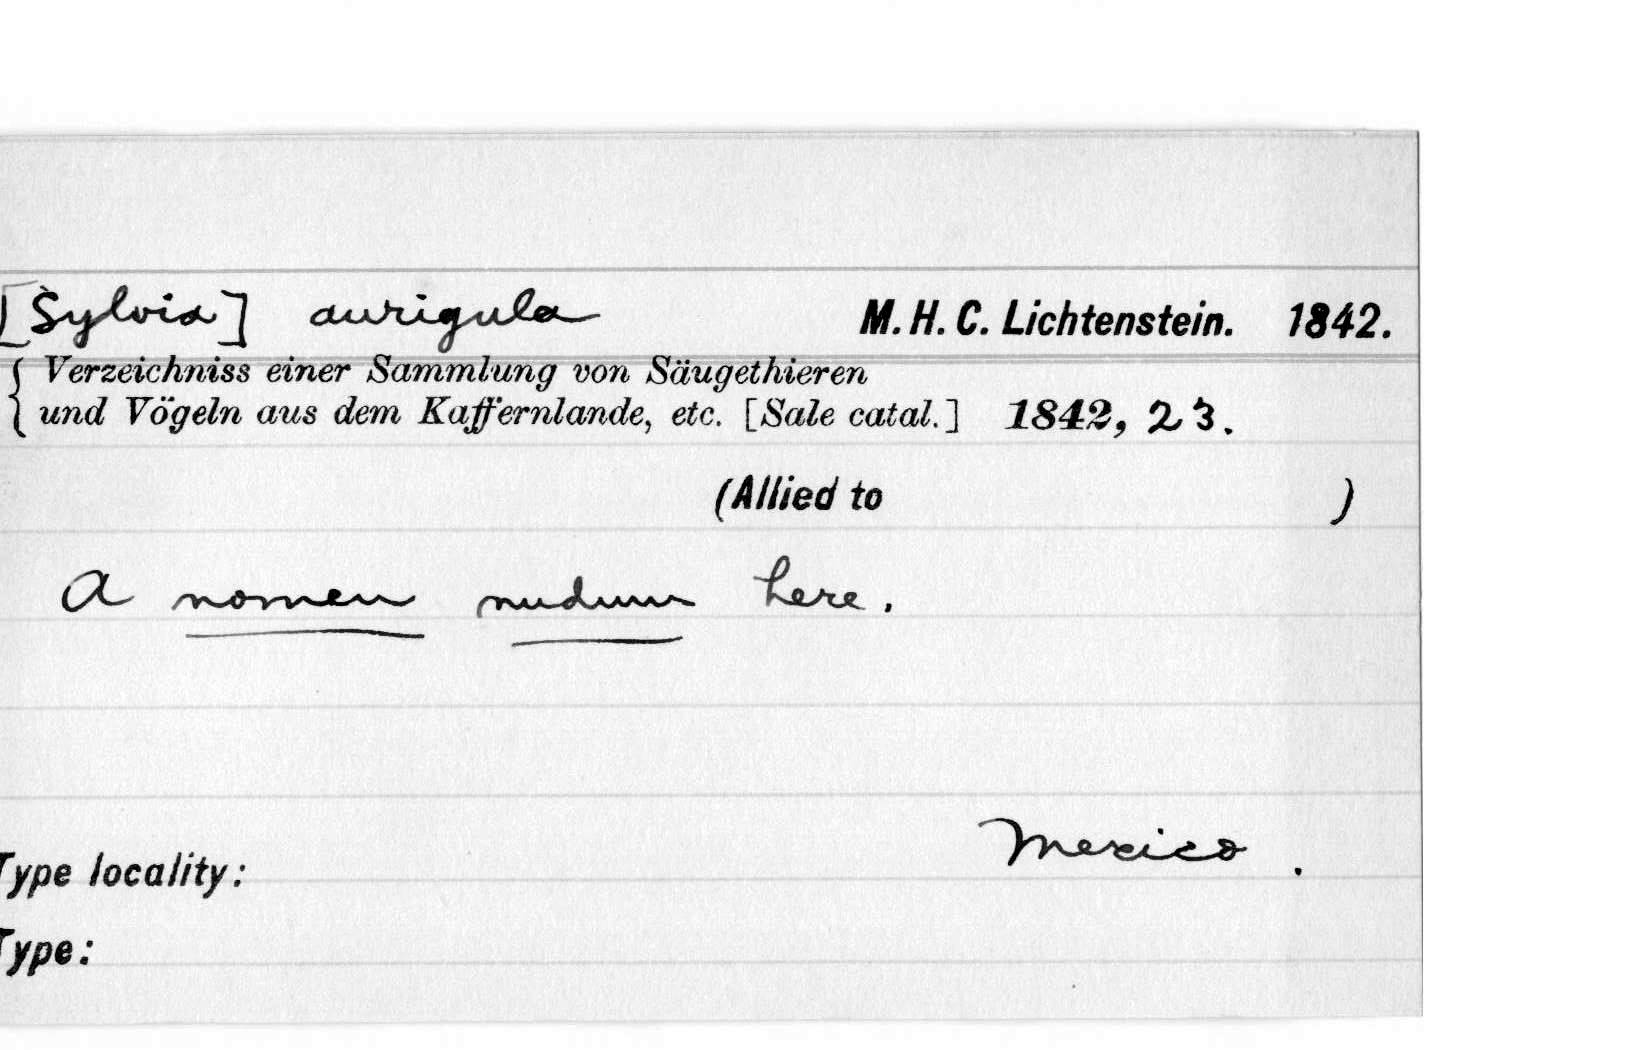 [Sylvia] aurigula M. H. C. Lichtenstein. 1842.
Verzeichniss einer Sammlung von Säugethieren
und Vögeln aus dem Kaffernlande, etc. [Sale catal.] 1842, 23.
(Allied to )
A nomen nudum here.
Mexico.
Type locality:
Type: